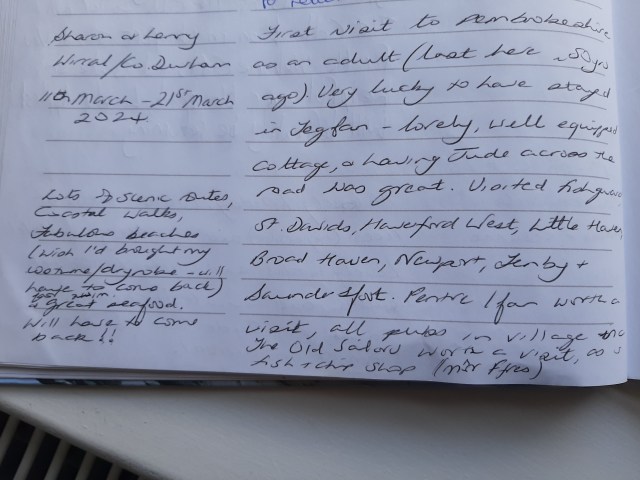 Sharon & Kerry
Wirral/Co. Durham
11th March - 21st March
2024
Lots of scenic routes,
Coastal walks,
Fabulous beaches
(wish I'd brought my
cossume/dryrobe - will
have to come back)
& great seafood.
Will have to come
back!!
First visit to Pembrokeshire
as an adult (last here ~50yrs
ago). Very lucky to have stayed
in Tegfan - lovely, well equipped
cottage, & having Jude across the
road was great. Visited Fishguard
St. Davids, Haverford West, Little Haven,
Broad Haven, Newport, Tenby +
Saundersfoot. Pentre Ifan worth a
visit, all pubs in village and
The Old Sailors worth a visit, as is
fish & chip shop